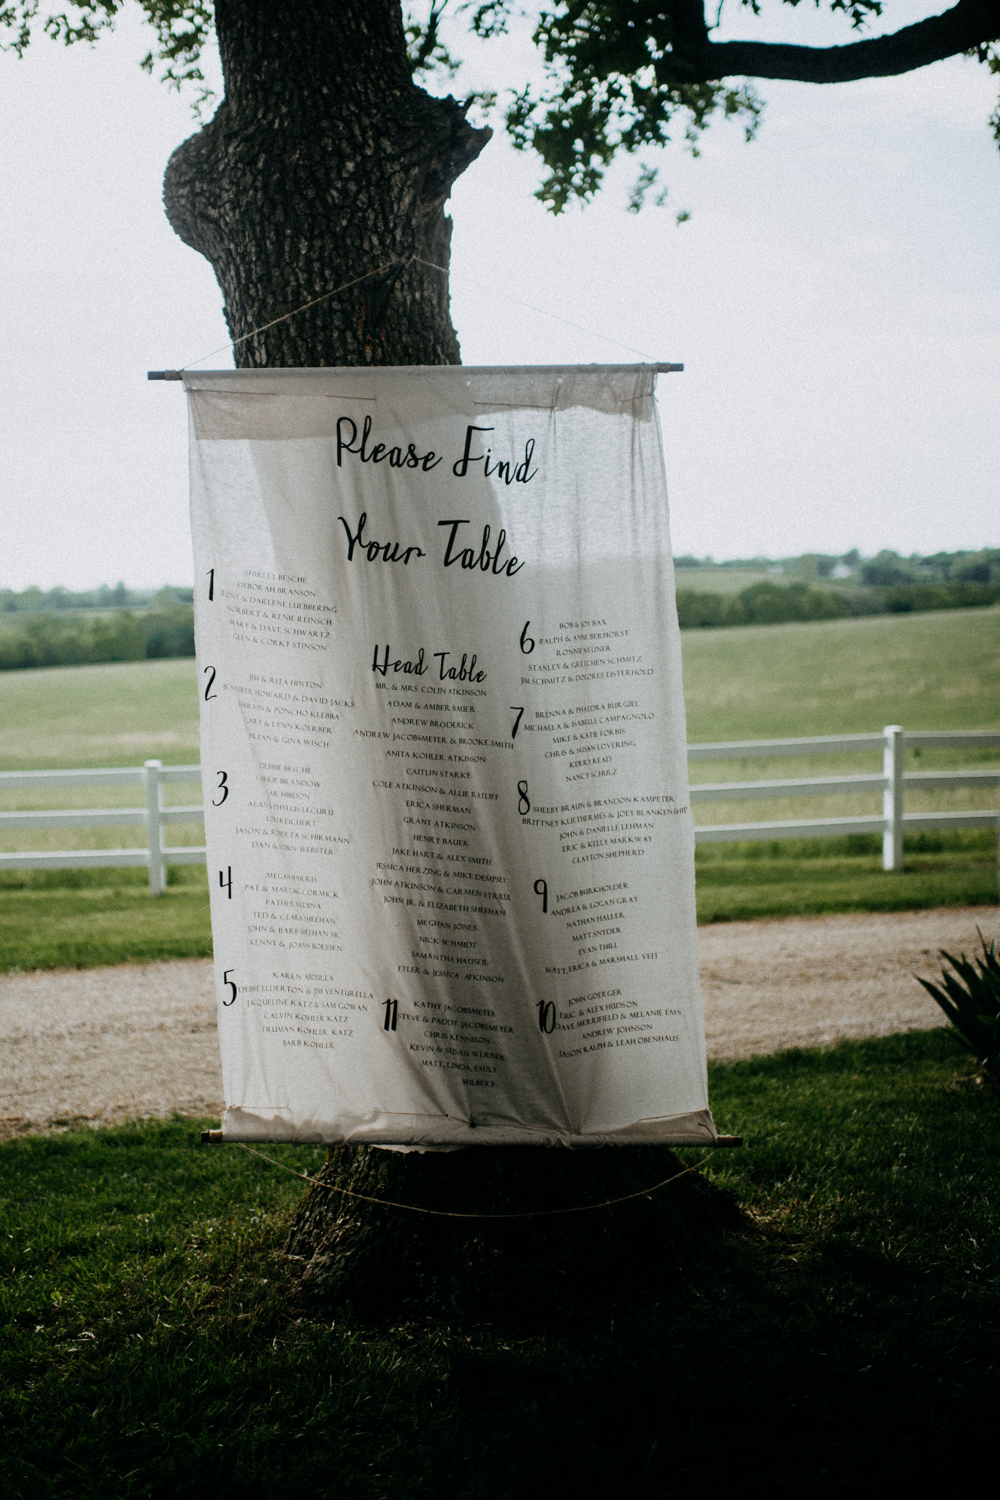 Please Find
Your Table
1
SHIRLEY BESCHE
DEBORAH BRANSON
TONY & DARLENE LUEBBERING
NORBERT & RENIE REINSCH
MARY & DAVE SCHWARTZ
GLEN & CORKY STINSON
2
JIM & RITA HINTON
JENNIFER HOWARD & DAVID JACKS
MARVIN & PONCHO KLEBBA
GARY & LYNN KOERBER
BRIAN & GINA WISCH
3
DEBBIE BESCHE
BRANDOW
HIBDON
ALAN PHYLLIS LECURU
LOU REICHERT
JASON & ROBERTA SCHIRMANN
DAN & ROBIN WEBSTER
4
MEGAN HARRIS
PAT & MARY MCCORMICK
FATHER MEDINA
TED & CLARA SHEEHAN
JOHN & BARB SHEEHAN SR.
KENNY & JOANN BOESSEN
5
KAREN ABDULLA
DEBBIE ELDERTON & JIM VENTURELLA
JACQUELINE KATZ & SAM GOWAN
CALVIN KOHLER KATZ
TRUMAN KOHLER KATZ
BARB KOHLER
Head Table
MR. & MRS COLIN ATKINSON
ADAM & AMBER BAUER
ANDREW BRODERICK
ANDREW JACOBSMEYER & BROOKE SMITH
ANITA KOHLER ATKINSON
CAITLIN STARKE
COLE ATKINSON & ALLIE RATLIFF
ERICA SHERMAN
GRANT ATKINSON
HENRY BAUER
JAKE HART & ALEX SMITH
JESSICA HERZING & MIKE DEMPSEY
JOHN ATKINSON & CARMEN STRILER
JOHN JR. & ELIZABETH SHEEHAN
MEGHAN JONES
NICK SCHMIDT
SAMANTHA HAUSER
TYLER & JESSICA ATKINSON
11
KATHY JACOBSMEYER
STEVE & PADDY JACOBSMEYER
CHRIS KENNISON
KEVIN & SUSAN WERNER
MATT, LINDA, EMILY
WILBERS
6
BOB & JOY BAX
RALPH & ANNE BERHORST
RONNIE NEUNER
STANLEY & GRETCHEN SCHMITZ
JIM SCHMITZ & DOLORES EISTERHOLD
7
BRENNA & PHAEDRA BURGIEL
MICHAELA & ISABELLE CAMPAGNOLO
MIKE & KATIE FORBIS
CHRIS & SUSAN LOVERING
KERRI READ
NANCY SCHULZ
8
SHELBY BRAUN & BRANDON KAMPETER
BRITTNEY KLIETHERMES & JOEY BLANKENSHIP
JOHN & DANIELLE LEHMAN
ERIC & KELLY MARKWAY
CLAYTON SHEPHERD
9
JACOB BURKHOLDER
ANDREA & LOGAN GRAY
NATHAN HALLER
MATT SNYDER
EVAN THILL
MATT, ERICA & MARSHALL VEIT
10
JOHN GOERGER
ERIC & ALEX HUDSON
DAVE MERRIFIELD & MELANIE EMS
ANDREW JOHNSON
JASON RALPH & LEAH OBENHAUS